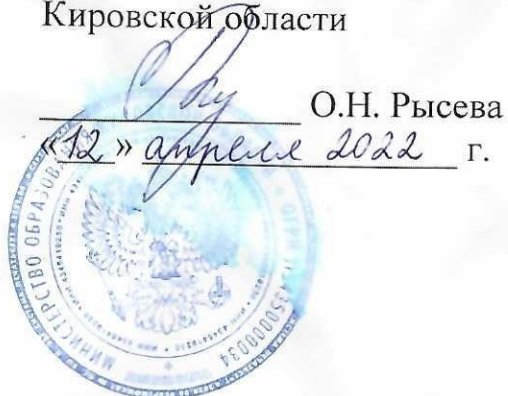 Кировской области
О.Н. Рысева
«12» апреля 2022 г.
МИНИСТЕРСТВО ОБРАЗОВАНИЯ